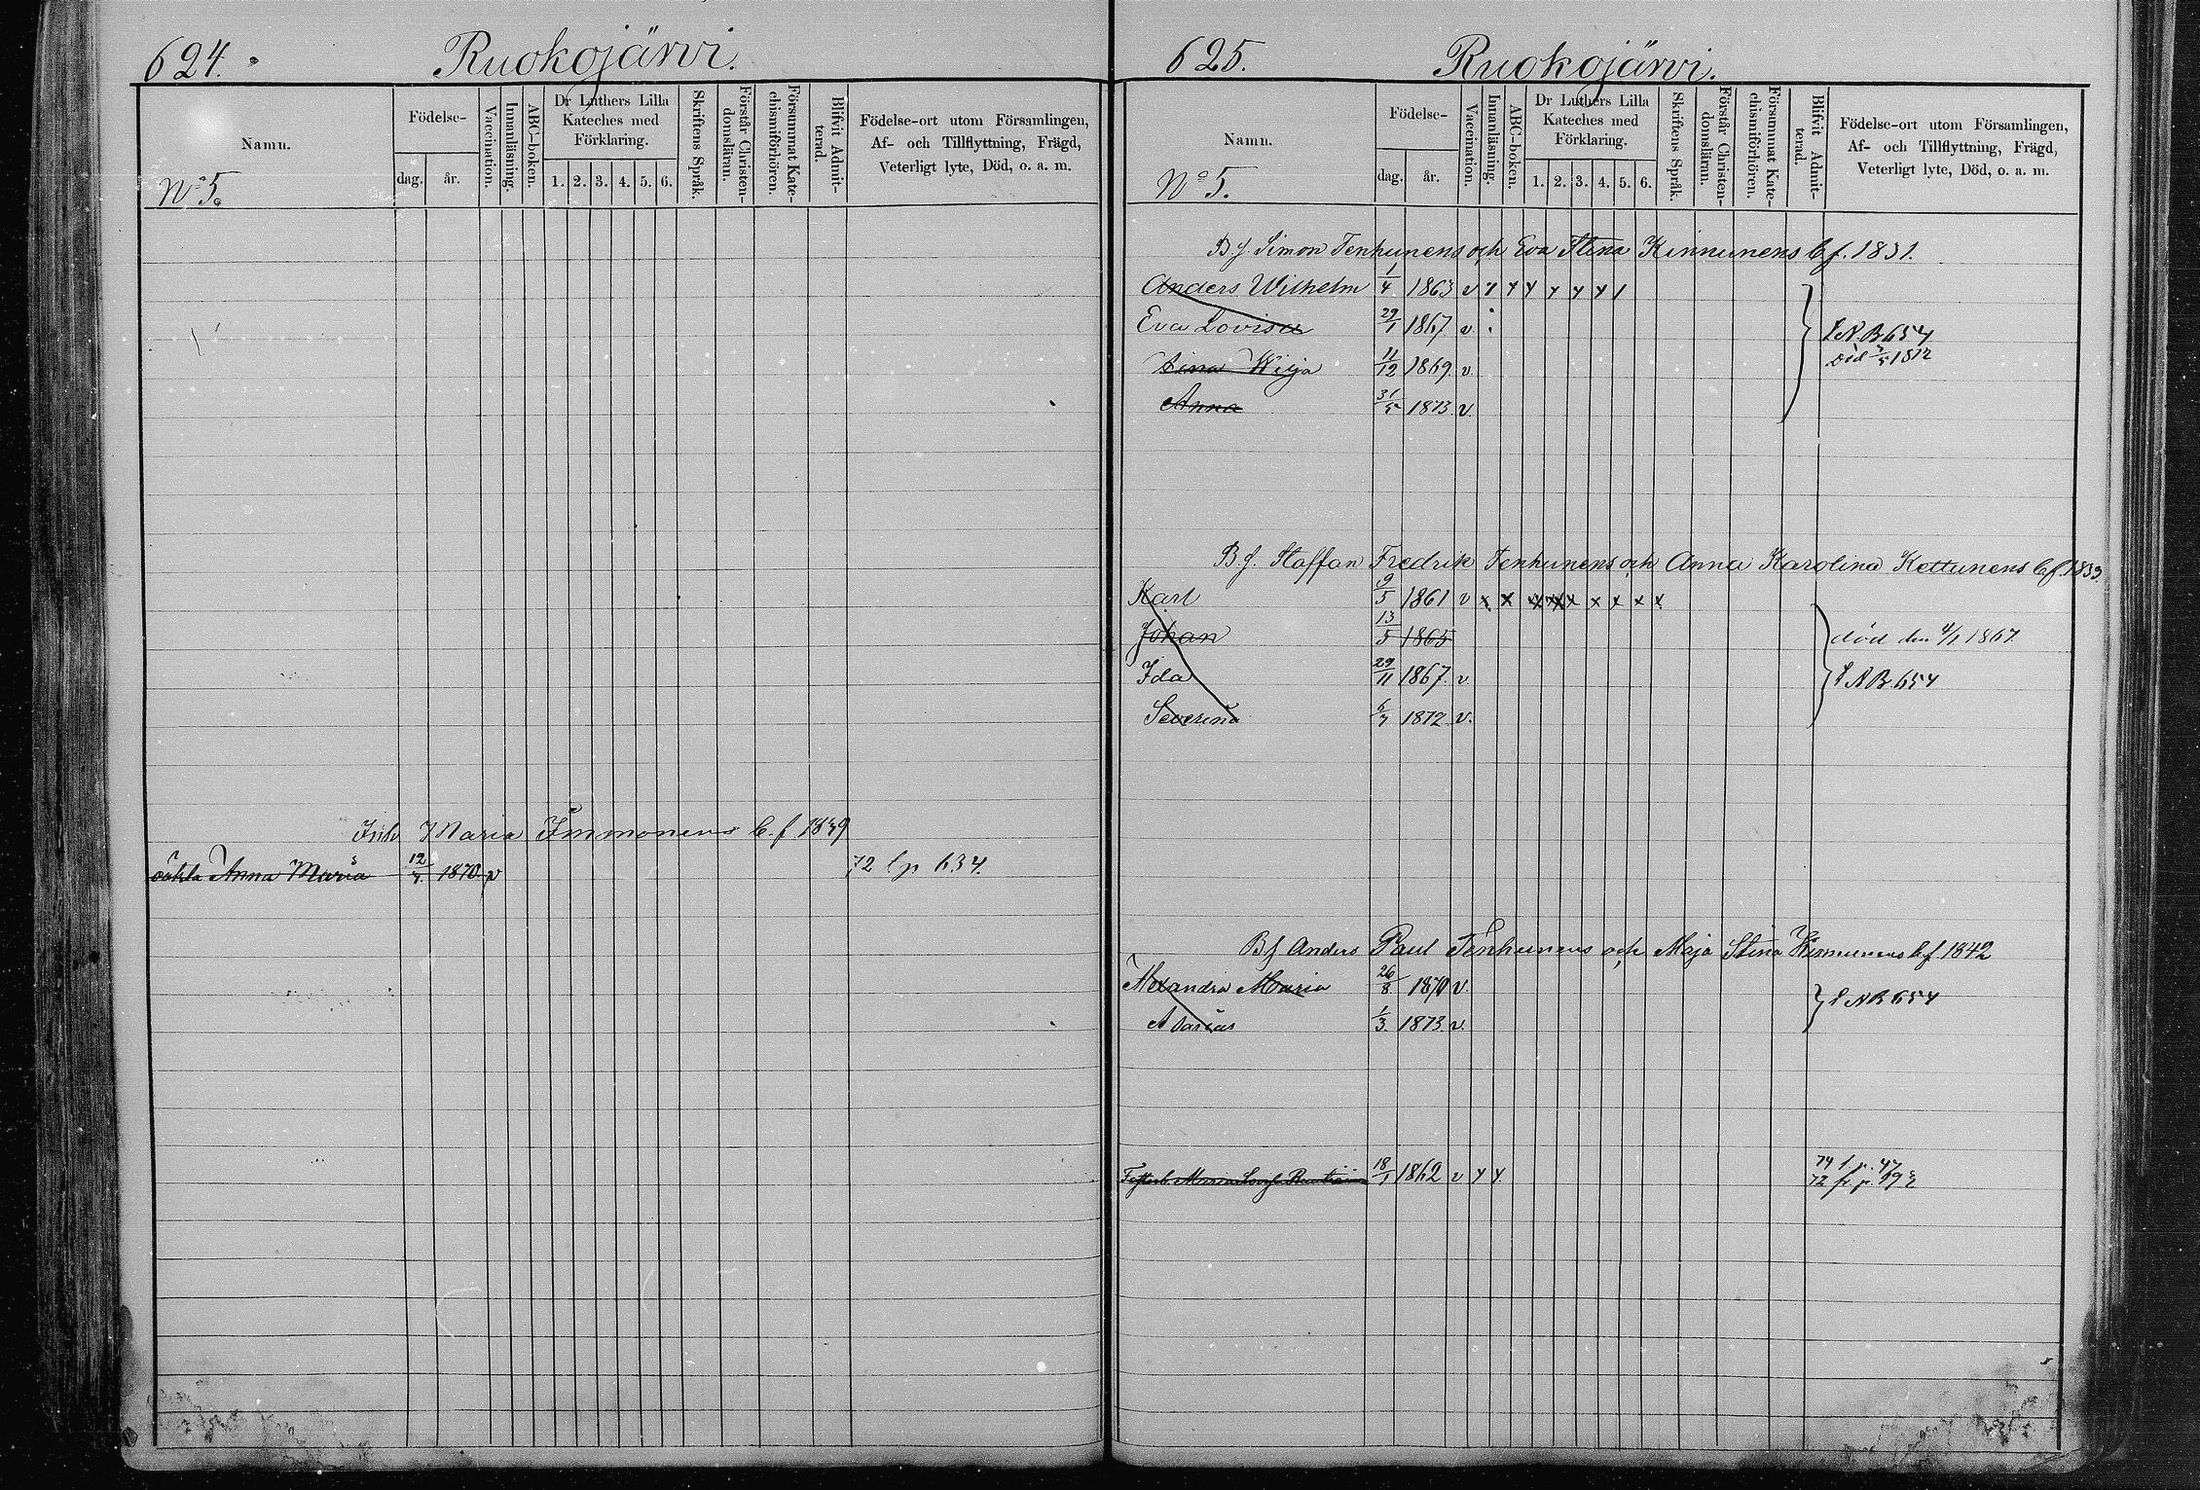 624.
Ruokojärvi.
Namn.
Födelse-
dag.
år.
Vaccination.
Innanläsning.
ABC-boken.
Dr Luthers Lilla
Kateches med
Förklaring.
1. 2. 3. 4. 5. 6.
Skriftens Språk.
Förstår Christen-
domsläran.
Försummat Kate-
chismiförhören.
Blifvit Admit-
terad.
Födelse-ort utom Församlingen,
Af- och Tillflyttning, Frägd,
Veterligt lyte, Död, o. a. m.
No 5.
Inh. Maria Immonens b. f. 1839
oäkta Anna Maria 12/7 1870 v 72 l p 634.
625.
Ruokojärvi.
Namn.
Födelse-
dag.
år.
Vaccination.
Innanläsning.
ABC-boken.
Dr Luthers Lilla
Kateches med
Förklaring.
1. 2. 3. 4. 5. 6.
Skriftens Språk.
Förstår Christen-
domsläran.
Försummat Kate-
chismiförhören.
Blifvit Admit-
terad.
Födelse-ort utom Församlingen,
Af- och Tillflyttning, Frägd,
Veterligt lyte, Död, o. a. m.
No 5.
B. f. Simon Tenhunens och Eva Stina Kinnunens b f. 1831.
Anders Wilhelm 1/4 1863 v
Eva Lovisa 29/1 1867 v. N.B. 654
11/12 1869 v. död 1872
Anna 31/5 1873 v.
B. f. Staffan Fredrik Tenhunens och Anna Karolina Kettunens b f. 1833
Karl 9/5 1861 v x x x x x x x x
Johan 13/5 1865 död den 4/1 1867.
Ida 29/11 1867 v. N B. 654
Severina 6/7 1872 v.
B f Anders Paul Tenhunens och Maja Stina b f 1842
Alexandra Maria 26/8 1870 v. N B 654
1/3 1873 v.
18/1 1862 v 74 l. p. 47
72 fr. p.